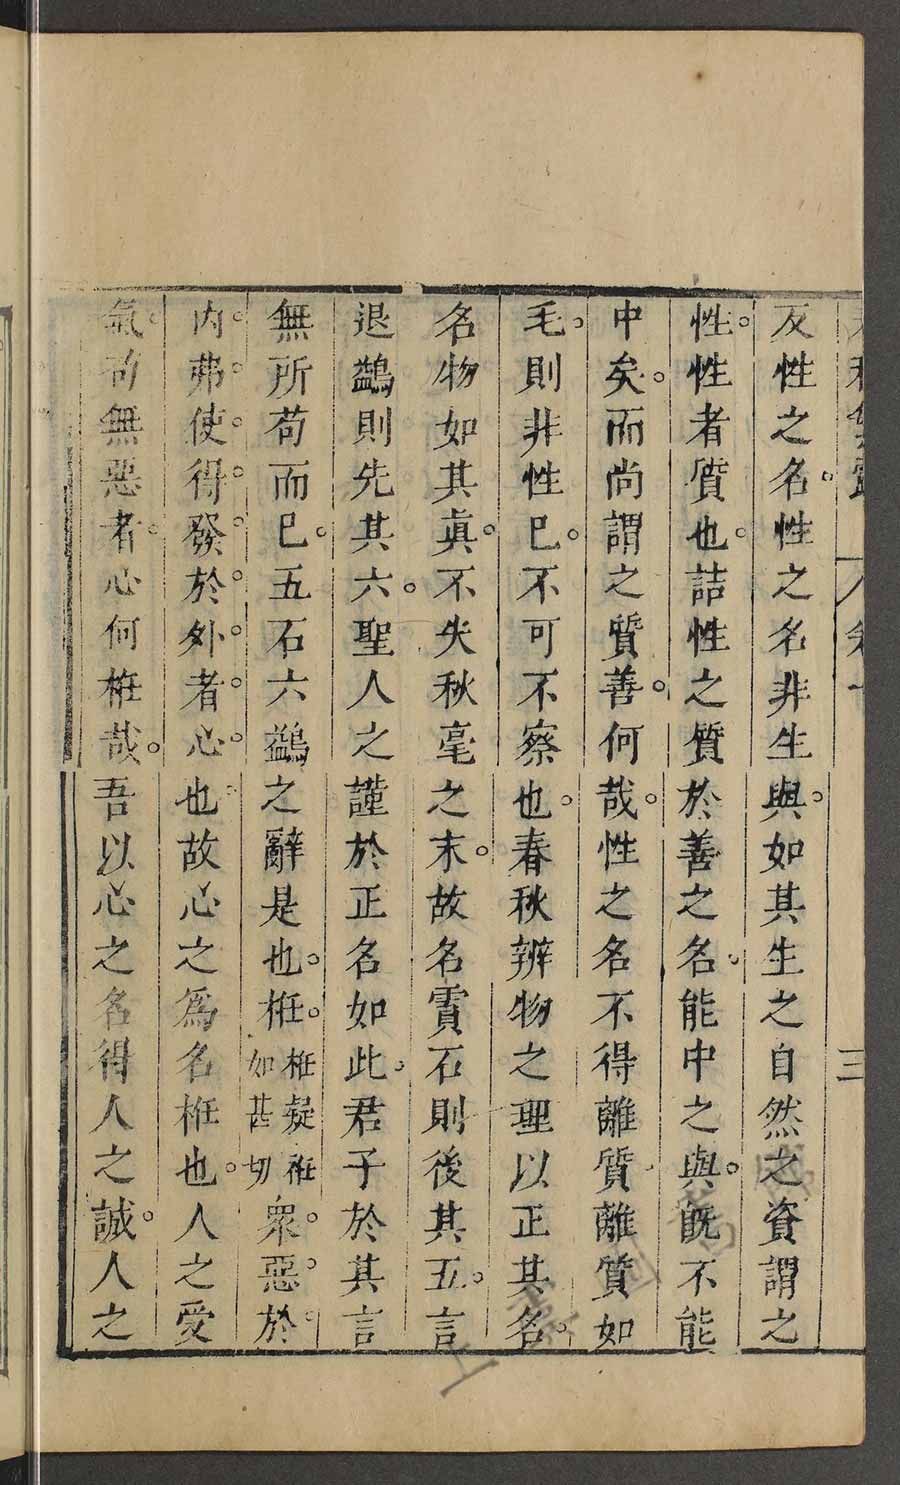 春秋繁露 卷十 三
反性之名。性之名非生與。如其生之自然之資謂之
性。性者質也。詰性之質於善之名。能中之與。旣不能
中矣。而尚謂之質善。何哉。性之名不得離質離質如
毛。則非性已。不可不察也。春秋辨物之理以正其名。
名物如其眞。不失秋毫之末。故名霣石則後其五。言
退鷁則先其六。聖人之謹於正名如此。君子於其言
無所苟而已。五石六鷁之辭是也。栣。栣疑袵如甚切衆。惡。於。
內。弗。使。得。發。於。外。者。心。也。故心之爲名栣也。人之受
氣。苟無惡者。心何栣哉。吾以心之名得人之誠。人之